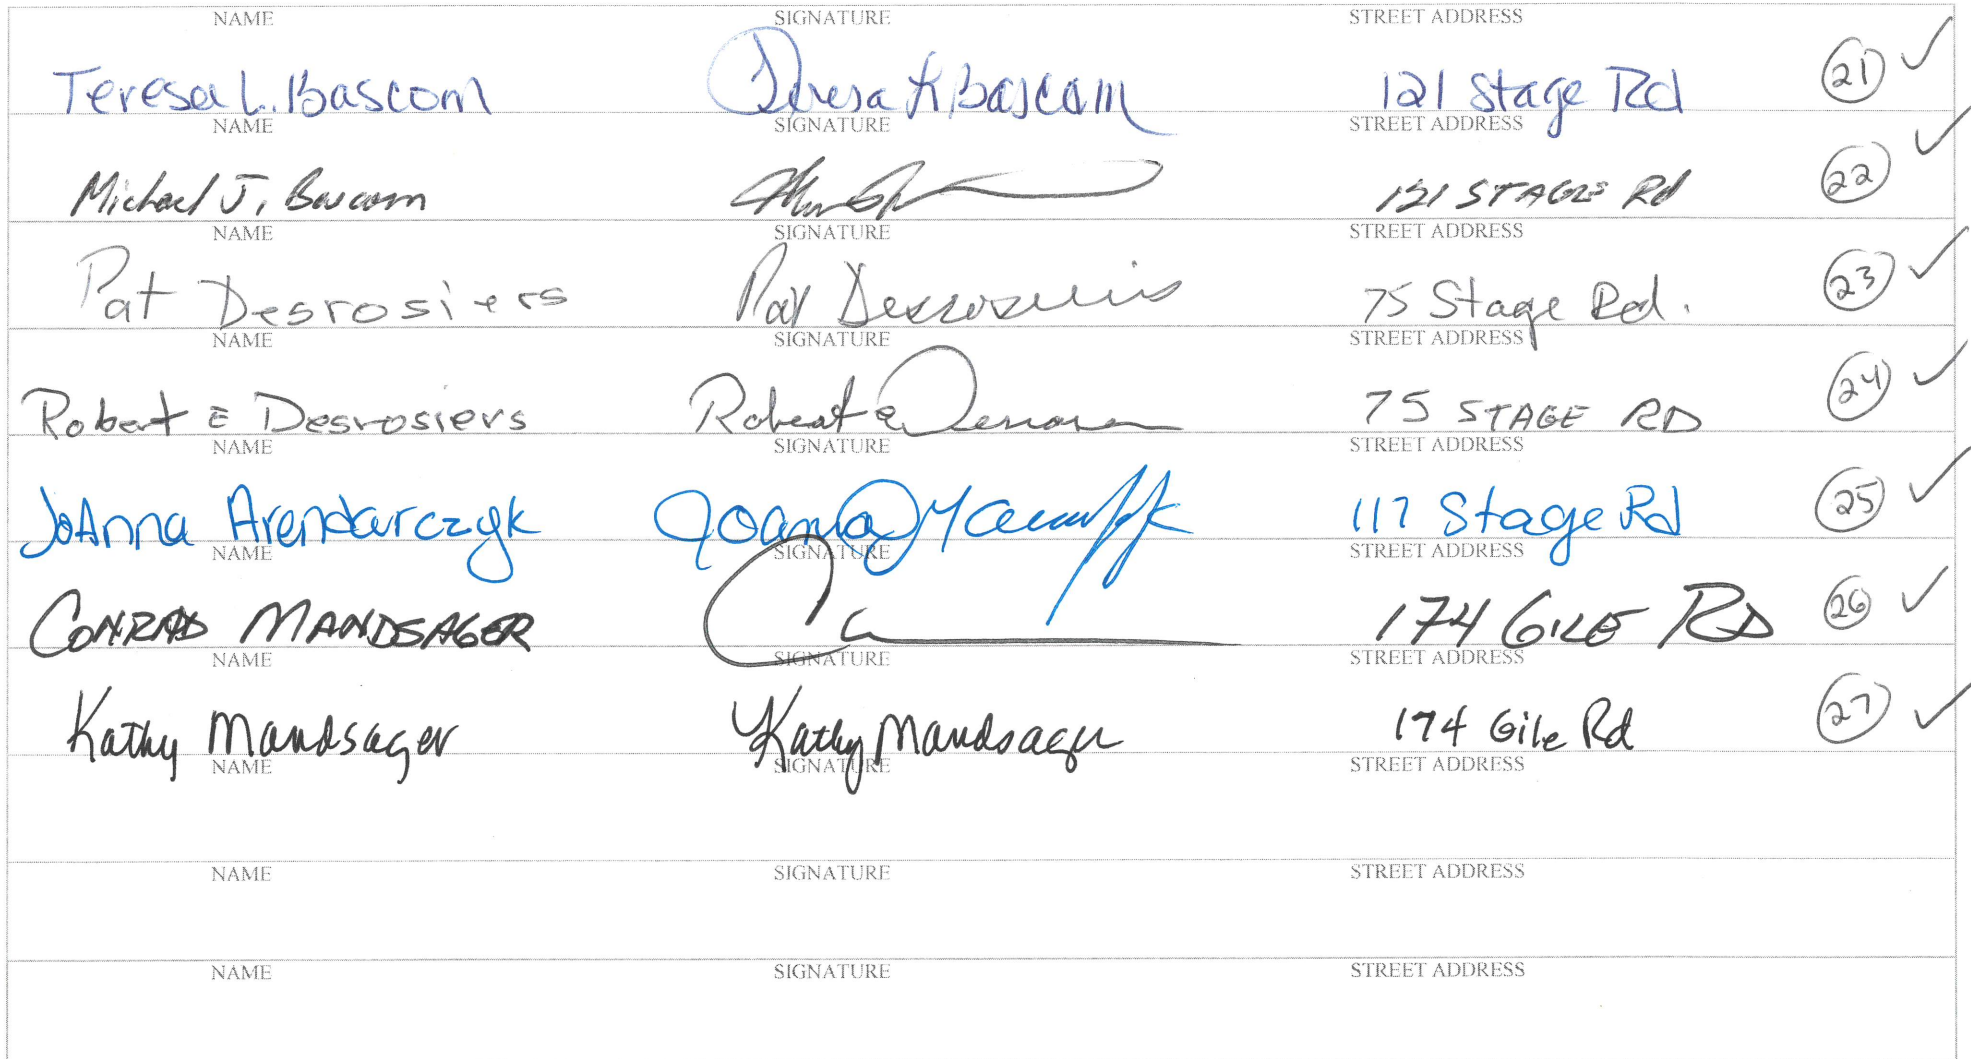 NAME SIGNATURE STREET ADDRESS
Teresa L. Bascom Teresa L Bascom 121 Stage Rd 21 ✓
NAME SIGNATURE STREET ADDRESS
Michael J. Bascom 121 STAGE Rd 22 ✓
NAME SIGNATURE STREET ADDRESS
Pat Desrosiers Pat Desrosiers 75 Stage Rd. 23 ✓
NAME SIGNATURE STREET ADDRESS
Robert E Desrosiers Robert E 75 STAGE RD 24 ✓
NAME SIGNATURE STREET ADDRESS
JoAnna Arendarczyk Joanna 117 Stage Rd 25 ✓
NAME SIGNATURE STREET ADDRESS
CONRAD MANDSAGER 174 GILE RD 26 ✓
NAME SIGNATURE STREET ADDRESS
Kathy Mandsager Kathy Mandsager 174 Gile Rd 27 ✓
NAME SIGNATURE STREET ADDRESS
NAME SIGNATURE STREET ADDRESS
NAME SIGNATURE STREET ADDRESS